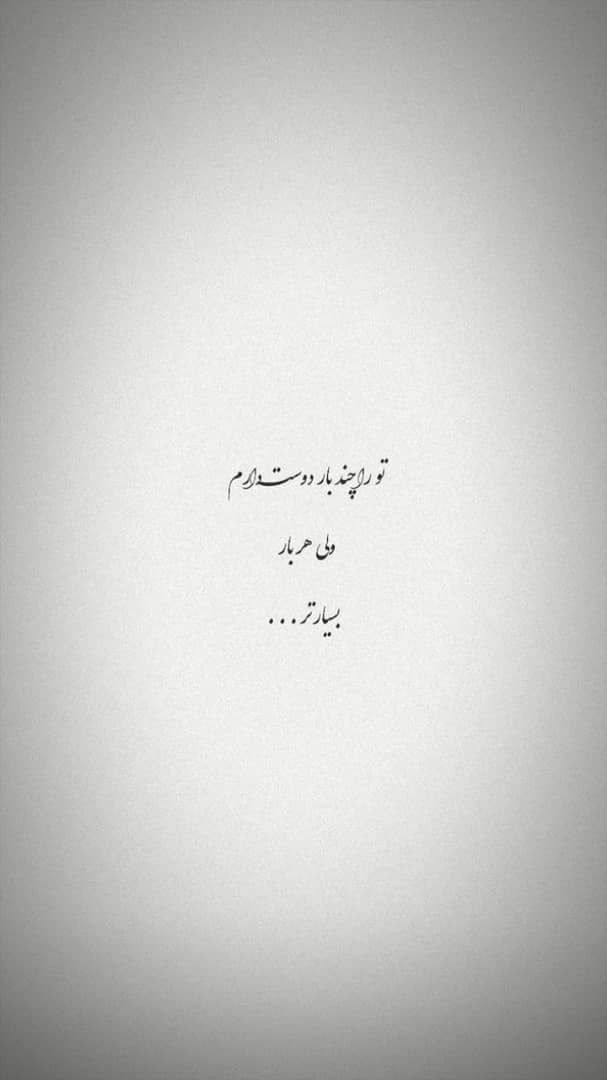 تو را چند بار دوست دارم
ولی هر بار
بسیارتر...